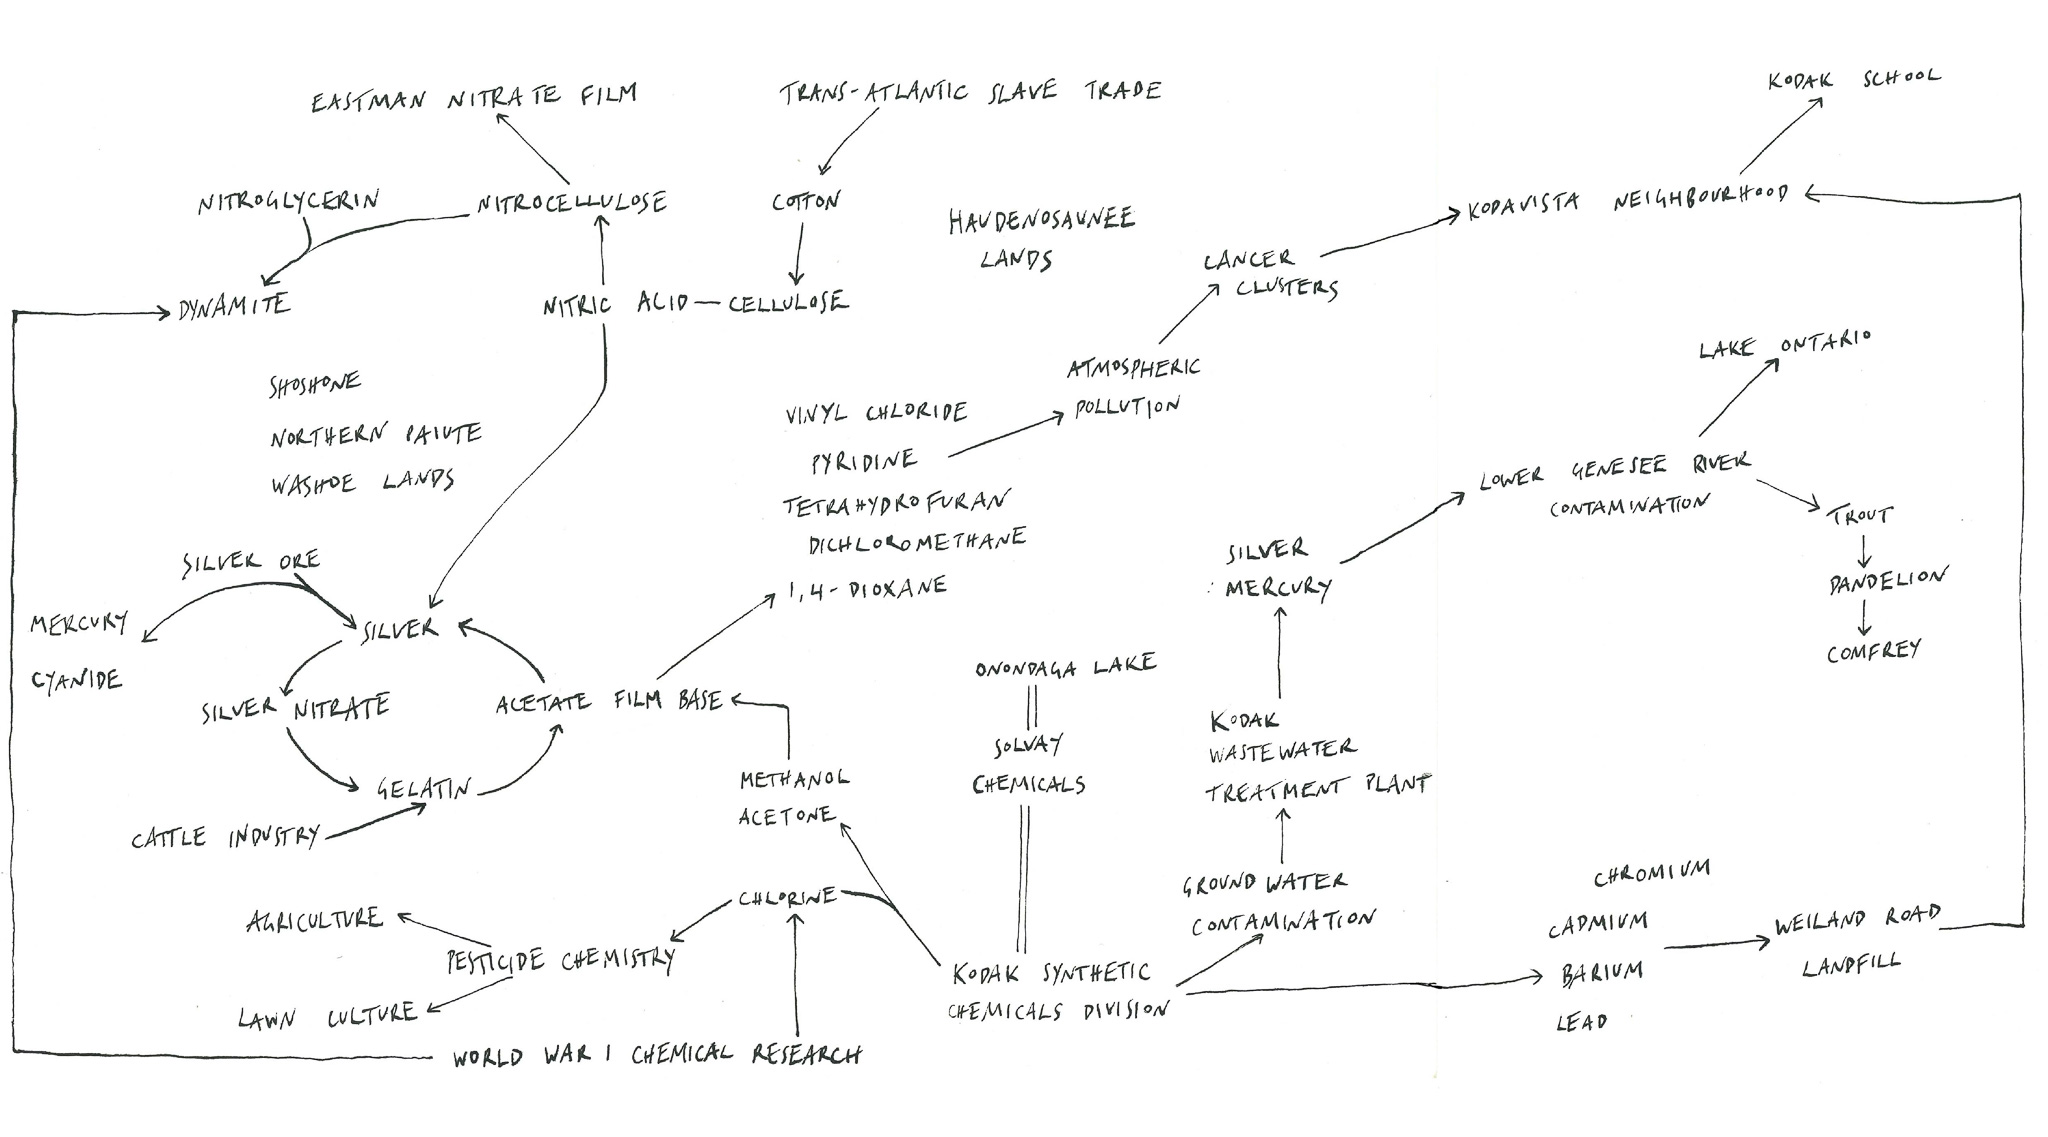 EASTMAN NITRATE FILM
TRANS-ATLANTIC SLAVE TRADE
KODAK SCHOOL
NITROGLYCERIN
NITROCELLULOSE
COTTON
HAUDENOSAUNEE
LANDS
KODAVISTA NEIGHBOURHOOD
CANCER
CLUSTERS
DYNAMITE
NITRIC ACID — CELLULOSE
SHOSHONE
NORTHERN PAIUTE
WASHOE LANDS
ATMOSPHERIC
POLLUTION
LAKE ONTARIO
VINYL CHLORIDE
PYRIDINE
TETRAHYDROFURAN
DICHLOROMETHANE
1,4-DIOXANE
LOWER GENESEE RIVER
CONTAMINATION
TROUT
DANDELION
COMFREY
SILVER ORE
MERCURY
CYANIDE
SILVER
SILVER NITRATE
ACETATE FILM BASE
GELATIN
CATTLE INDUSTRY
SILVER
MERCURY
ONONDAGA LAKE
SOLVAY
CHEMICALS
KODAK
WASTEWATER
TREATMENT PLANT
METHANOL
ACETONE
CHLORINE
GROUNDWATER
CONTAMINATION
CHROMIUM
CADMIUM
BARIUM
LEAD
WEILAND ROAD
LANDFILL
AGRICULTURE
PESTICIDE CHEMISTRY
LAWN CULTURE
KODAK SYNTHETIC
CHEMICALS DIVISION
WORLD WAR I CHEMICAL RESEARCH